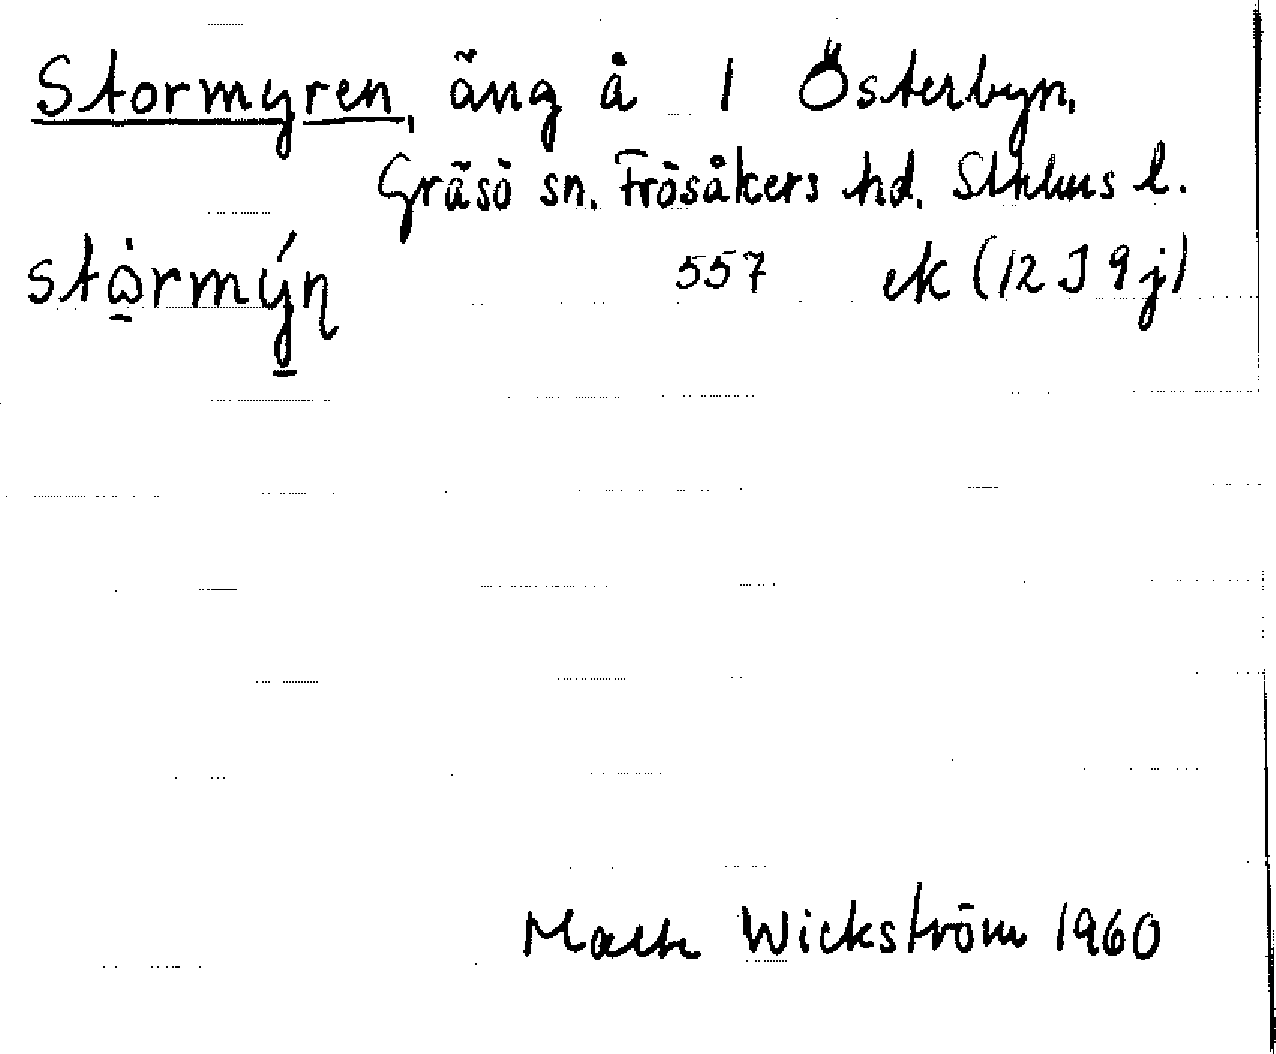 Stormyren, äng å 1 Österbyn,
Gräsö sn. Frösåkers hd. Sthlms l.
557 ek (12 J 9 j)
Wickström 1960